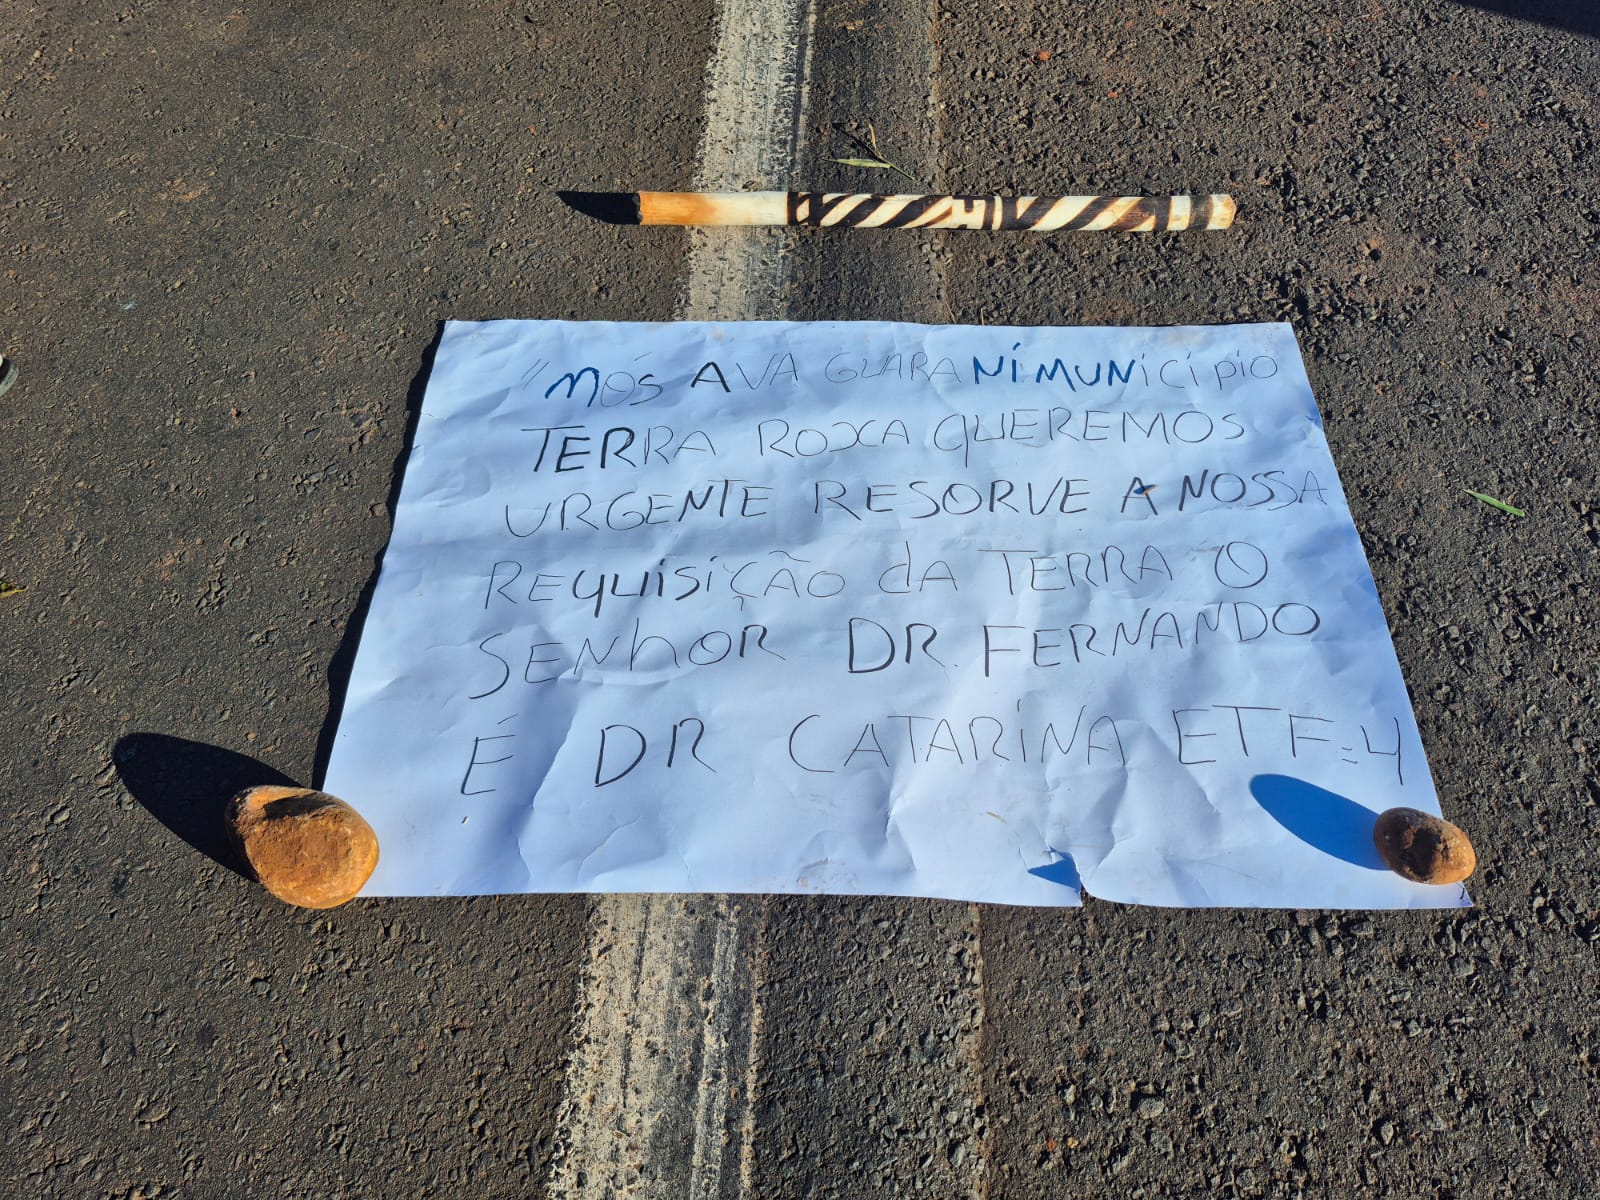 "NÓS AVA GUARANÍ MUNiCiPIO
TERRA ROXA QUEREMOS
URGENTE RESORVE A NOSSA
REQUISIÇÃO dA TERRA O
SENhOR DR. FERNANDO
É DR CATARÍNA ETF=4